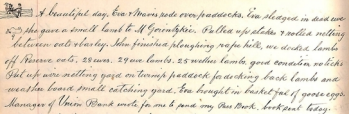 A beautiful day. Eva & Mavis rode over paddocks. Eva sledged in dead ewe
she gave a small lamb to M Gorentzkie. Pulled up stakes & rolled netting
between oats & barley. John finished ploughing rape hill, we docked lambs
off Reserve oats. 28 ewes. 29 ewe lambs. 25 wether lambs, good condition, no ticks
Put up wire netting yard on turnip paddock for docking back lambs and
weather board small catching yard. Eva brought in basket full of goose eggs.
Manager of Union Bank wrote for me to send my Pass Book, book sent today.